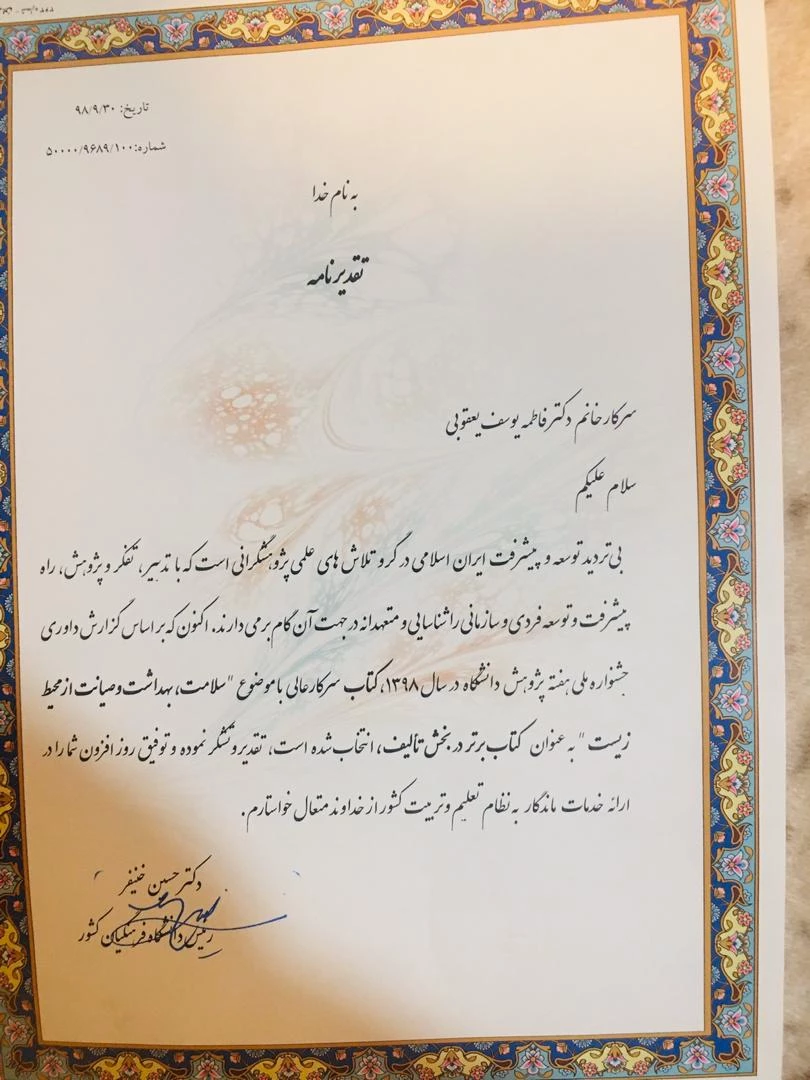 تاریخ: ۹۸/۹/۳۰
شماره: ۵۰۰۰۰/۹۶۸۹/۱۰۰
به نام خدا
تقدیرنامه
سرکار خانم دکتر فاطمه یوسف یعقوبی
سلام علیکم
بی تردید توسعه و پیشرفت ایران اسلامی در گرو تلاش های علمی پژوهشگرانی است که با تدبیر، تفکر و پژوهش، راه
پیشرفت و توسعه فردی و سازمانی را شناسایی و متعهدانه در جهت آن گام برمی دارند. اکنون که بر اساس گزارش داوری
جشنواره ملی هفته پژوهش دانشگاه در سال ۱۳۹۸، کتاب سرکارعالی با موضوع "سلامت، بهداشت و صیانت از محیط
زیست" به عنوان کتاب برتر در بخش تألیف، انتخاب شده است، تقدیر و تشکر نموده و توفیق روز افزون شما را در
ارائه خدمات ماندگار به نظام تعلیم و تربیت کشور از خداوند متعال خواستارم.
دکتر حسین خنیفر
رئیس دانشگاه فرهنگیان کشور